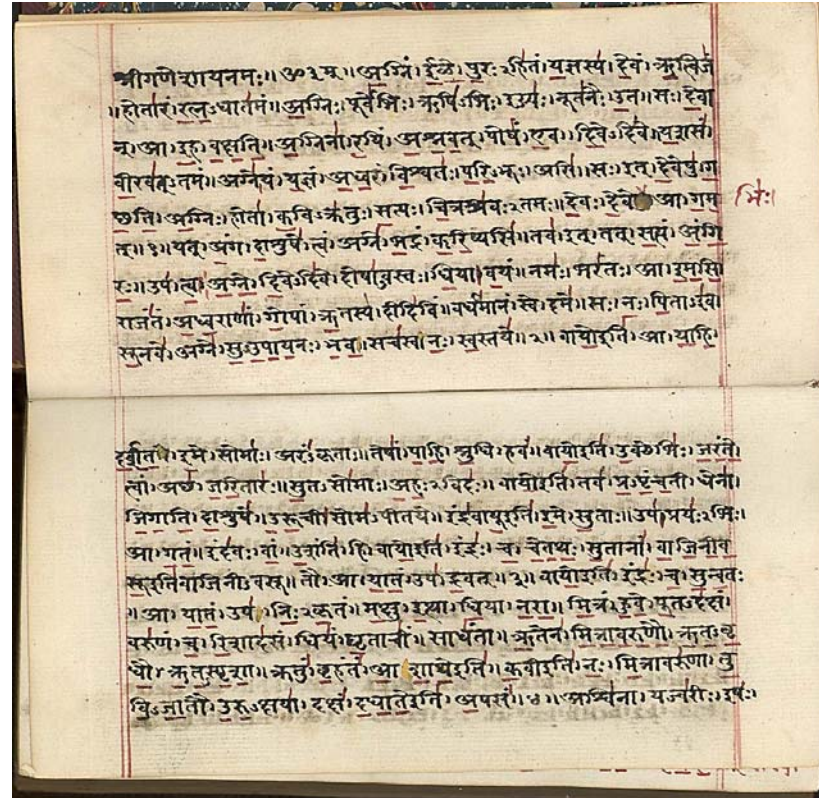 श्रीगणेशायनमः॥ॐ३म्॥अग्निं।ईळे।पुरःऽहितं।यज्ञस्य।देवं।ऋत्विजं
॥होतारं।रत्नऽधातमं॥अग्निः।पूर्वेभिः।ऋषिऽभिः।ईड्यः।नूतनैः।उत॥सः।देवा
न्।आ।इह।वक्षति॥अग्निना।रयिं।अश्नवत्।पोषं।एव।दिवेऽदिवे॥यशसं
वीरवत्ऽतमं॥अग्ने।यं।यज्ञं।अध्वरं।विश्वतः।परिऽभूः।असि॥सः।इत्।देवेषु।ग
च्छति।अग्निः।होता।कविऽक्रतुः।सत्यः।चित्रश्रवःऽतमः॥देवः।देवे।आ।गम
भिः।
त्॥१॥यत्।अंग।दाशुषे।त्वं।अग्ने।भद्रं।करिष्यसि॥तव।इत्।तत्।सत्यं।अंगि
रः॥उप।त्वा।अग्ने।दिवेऽदिवे।दोषाऽवस्तः।धिया।वयं॥नमः।भरंतः।आ।इमसि
राजंतं।अध्वराणां।गोपां।ऋतस्य।दीदिविं॥वर्धमानं।स्वे।दमे॥सः।नः।पिताऽइव।
सूनवे।अग्ने।सुऽउपायनः।भव॥सचस्व।नः।स्वस्तये॥२॥वायोइति।आ।याहि।
दर्शत।इमे।सोमाः।अरंऽकृताः॥तेषां।पाहि।श्रुधि।हवं॥वायोइति।उक्थेभिः।जरंते।
त्वां।अच्छ।जरितारः॥सुतऽसोमाः।अहःऽविदः॥वायोइति।तव।प्रऽपृंचती।धेना।
जिगाति।दाशुषे॥उरूची।सोमऽपीतये॥इंद्रवायूइति।इमे।सुताः॥उप।प्रयःऽभिः।
आ।गतं॥इंदवः।वां।उशंति।हि॥वायोइति।इंद्रः।च।चेतथः।सुतानां।वाजिनीव
सूइतिवाजिनीऽवसू॥तौ।आ।यातं।उप।द्रवत्॥३॥वायोइति।इंद्रः।च।सुन्वतः
॥आ।यातं।उप।निःऽकृतं॥मक्षु।इत्था।धिया।नरा॥मित्रं।हुवे।पूतऽदक्षं।
वरुणं।च।रिशादसं॥धियं।घृताचीं।साधंता॥ऋतेन।मित्रावरुणौ।ऋतऽवृ
धौ।ऋतऽस्पृशा॥क्रतुं।बृहंतं।आशाथेइति॥कवीइति।नः।मित्रावरुणा।तु
विऽजातौ।उरुऽक्षया।दक्षं।दधातेइति।अपसं॥४॥अश्विना।यज्वरीः।इषः।